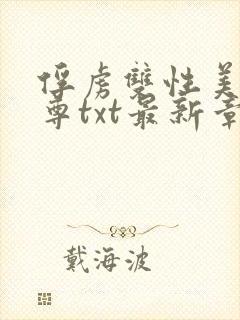 俘虏双性美
尊txt最新章
戴海波